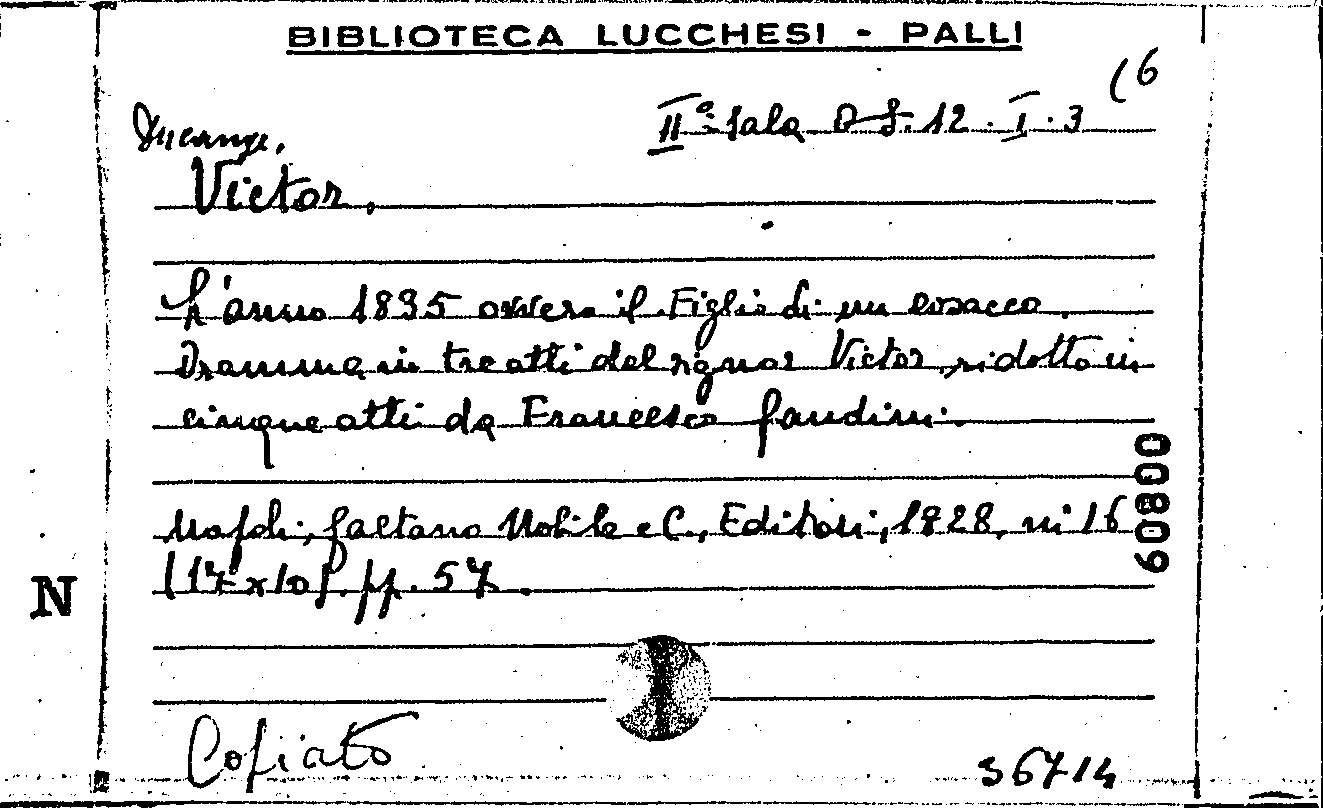 BIBLIOTECA LUCCHESI - PALLI
(6
IIª Sala D S. 12. I. 3
Ducange,
Victor,
L'anno 1835 ovvero il Figlio di un cosacco.
Dramma in tre atti del signor Victor, ridotto in
cinque atti da Francesco Gandini.
Napoli, Gaetano Nobile e C., Editori, 1828, in 16
(17x10). pp. 57.
60800
N
Copiato
36714